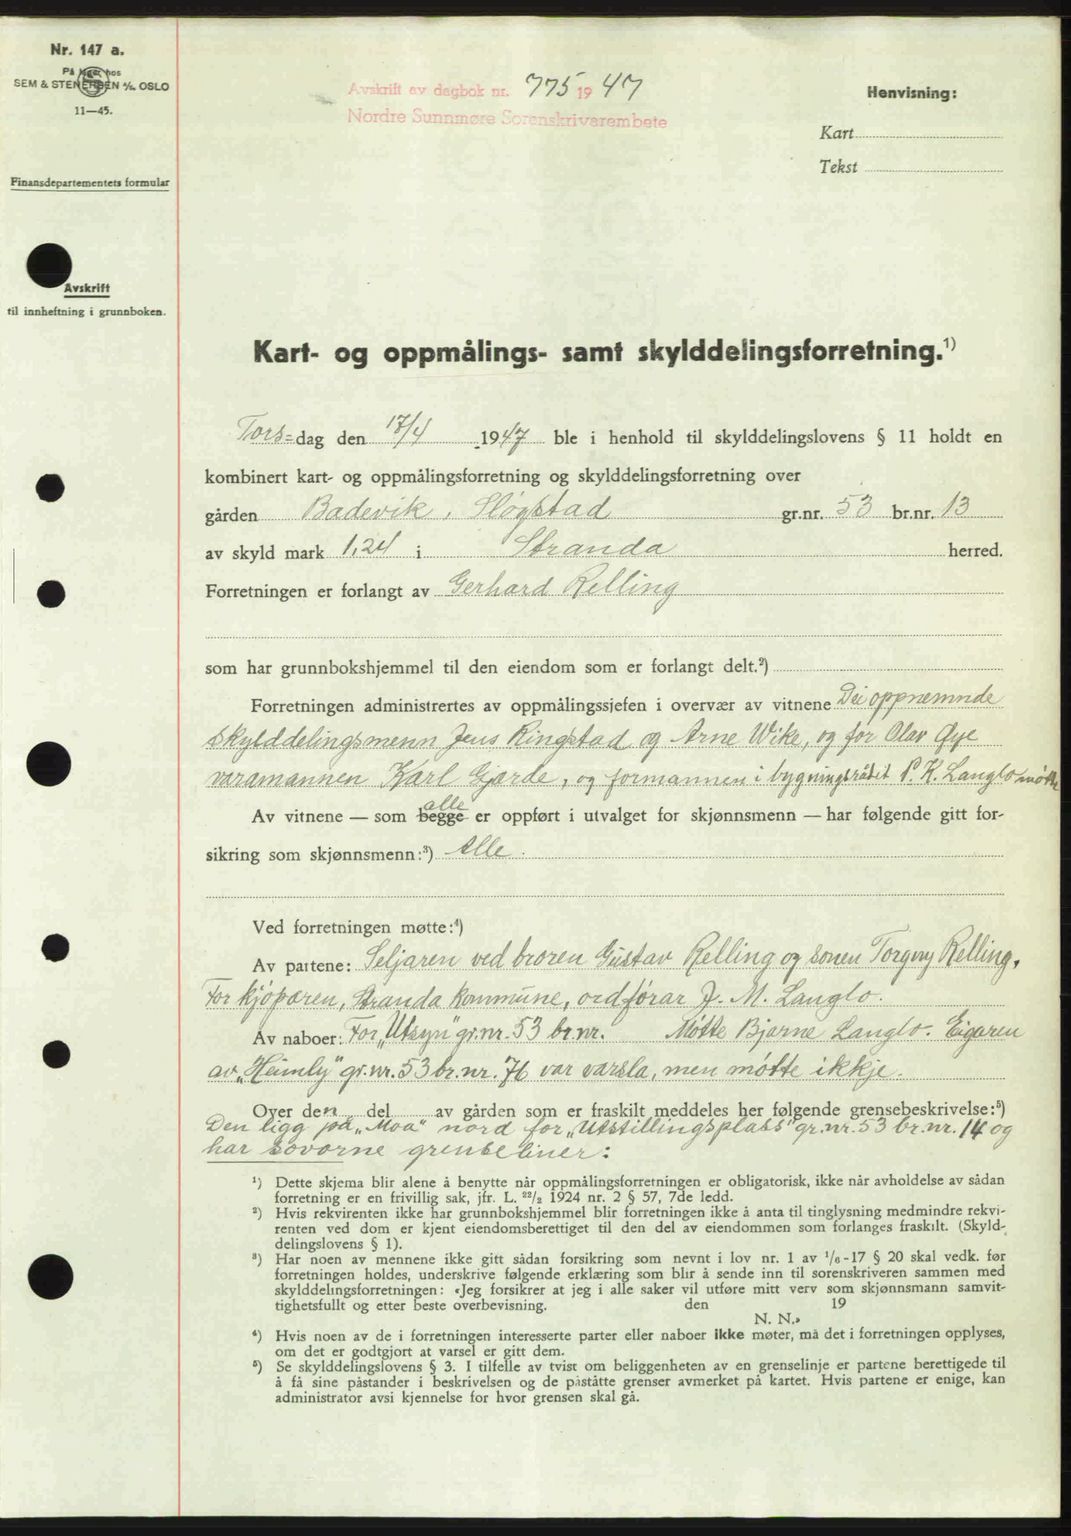 Nr. 147 a.
På lager hos
SEM & STENERSEN A/S. OSLO
11—45.
Finansdepartementets formular
Avskrift
til innheftning i grunnboken.
Avskrift av dagbok nr. 775 1947
Nordre Sunnmøre Sorenskrivarembete
Henvisning:
Kart
Tekst
Kart- og oppmålings- samt skylddelingsforretning.¹)
Tors=dag den 17/4 1947 ble i henhold til skylddelingslovens § 11 holdt en
kombinert kart- og oppmålingsforretning og skylddelingsforretning over
gården Badevik, Sløgstad gr.nr. 53 br.nr. 13
av skyld mark 1,24 i Stranda herred.
Forretningen er forlangt av Gerhard Relling
som har grunnbokshjemmel til den eiendom som er forlangt delt.²)
Forretningen administrertes av oppmålingssjefen i overvær av vitnene Dei oppnemnde
skylddelingsmenn Jens Ringstad og Arne Wike, og for Olav Øye
varamannen Karl Gjærde, og formannen i bygningsrådet P. K. Langlo møtte
Av vitnene — som begge alle er oppført i utvalget for skjønnsmenn — har følgende gitt for-
sikring som skjønnsmenn:³) Alle.
Ved forretningen møtte:⁴)
Av partene: Seljaren ved broren Gustav Relling og sonen Torgny Relling,
For kjøparen, Stranda kommune, ordførar J. M. Langlo.
Av naboer: For „Utsyn" gr.nr. 53 br.nr. Møtte Bjarne Langlo. Eigaren
av „Heimly" gr.nr. 53 br.nr. 76 var varsla, men møtte ikkje.
Over den del av gården som er fraskilt meddeles her følgende grensebeskrivelse:⁵)
Den ligg på „Moa" nord for „Utstillingsplass" gr.nr. 53 br.nr. 14 og
har sovorne grenseliner:
¹) Dette skjema blir alene å benytte når oppmålingsforretningen er obligatorisk, ikke når avholdelse av sådan
forretning er en frivillig sak, jfr. L. 22/2 1924 nr. 2 § 57, 7de ledd.
²) Hvis rekvirenten ikke har grunnbokshjemmel blir forretningen ikke å anta til tinglysning medmindre rekvi-
renten ved dom er kjent eiendomsberettiget til den del av eiendommen som forlanges fraskilt. (Skyld-
delingslovens § 1).
³) Har noen av mennene ikke gitt sådan forsikring som nevnt i lov nr. 1 av 1/6-17 § 20 skal vedk. før
forretningen holdes, underskrive følgende erklæring som blir å sende inn til sorenskriveren sammen med
skylddelingsforretningen: «Jeg forsikrer at jeg i alle saker vil utføre mitt verv som skjønnsmann samvit-
tighetsfullt og etter beste overbevisning. den 19
N. N.»
⁴) Hvis noen av de i forretningen interesserte parter eller naboer ikke møter, må det i forretningen opplyses,
om det er godtgjort at varsel er gitt dem.
⁵) Se skylddelingslovens § 3. I tilfelle av tvist om beliggenheten av en grenselinje er partene berettigede til
å få sine påstander i beskrivelsen og de påståtte grenser avmerket på kartet. Hvis partene er enige, kan
administrator avsi kjennelse for hvor grensen skal gå.